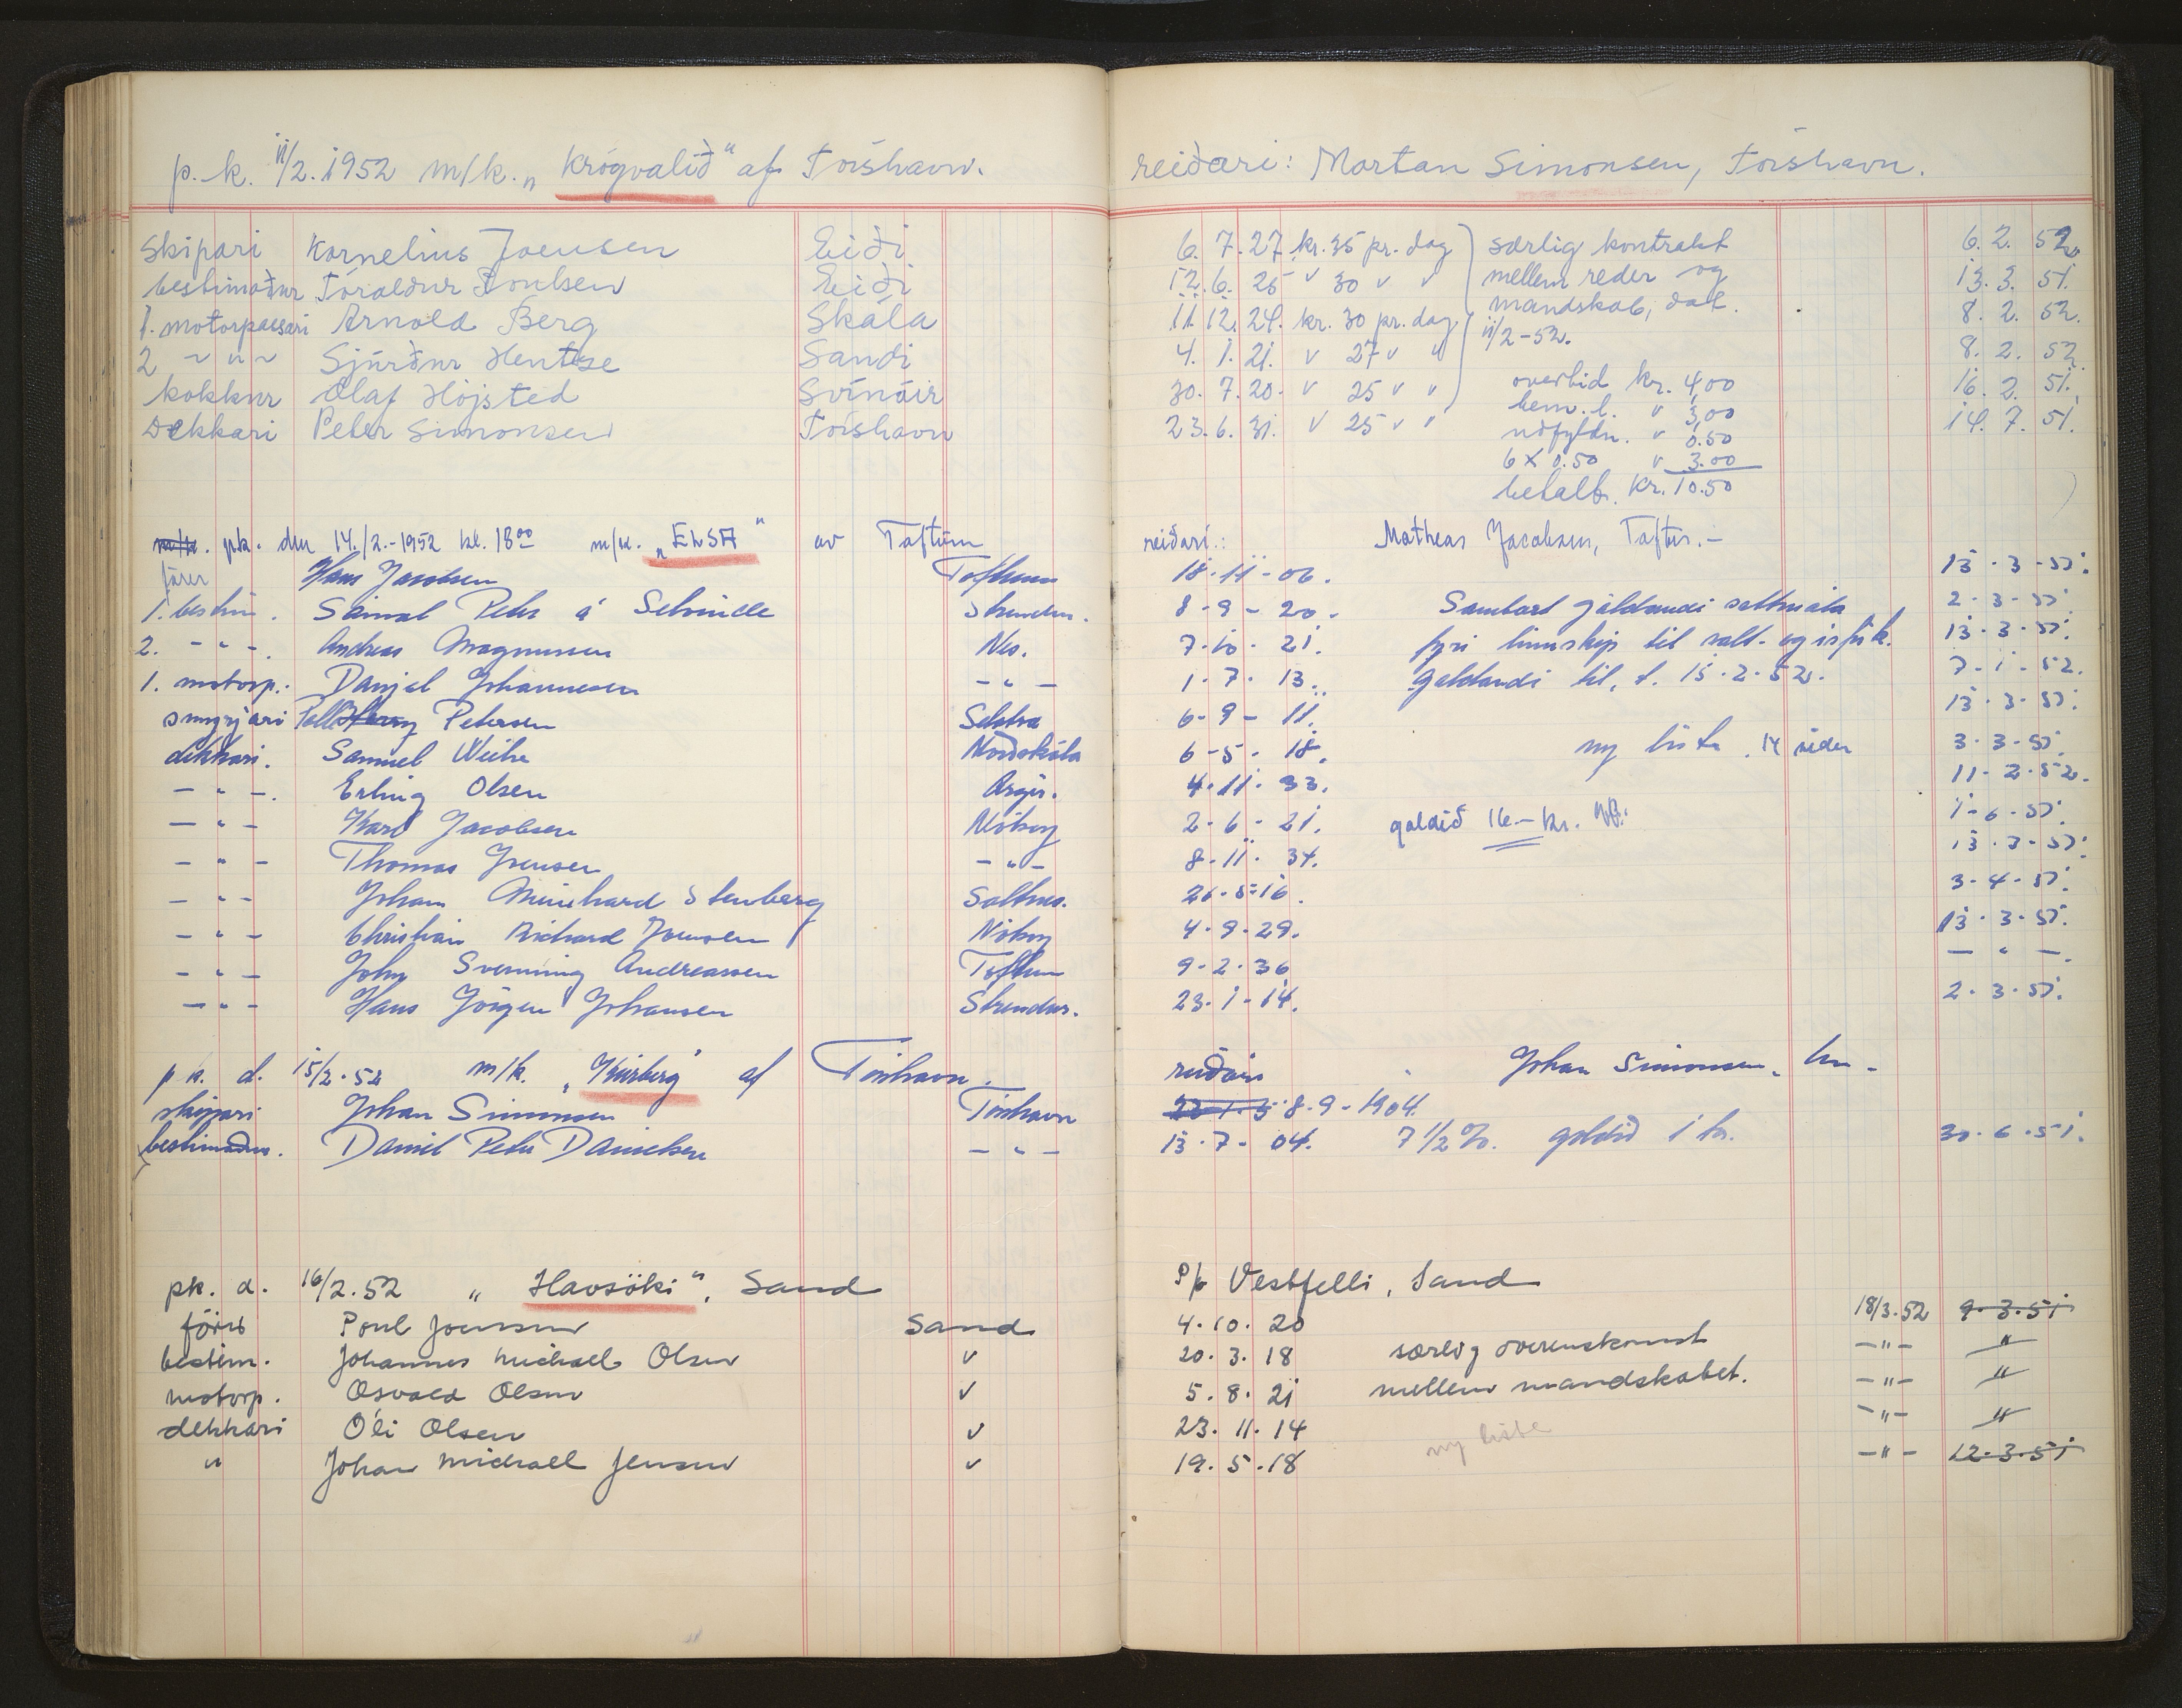 p.k. 11/2.1952 m/k. „Krógvalið" af Tórshavn. reiðari: Mortan Simonsen, Tórshavn.
Skipari Kornelius Joensen Eiði 6. 7. 27 kr. 35 pr. dag særlig kontrakt 6. 2. 52.
bestimaður Tóraldur Poulsen Eiði 12. 6. 25 " 30 " " mellem reder og 13. 3. 51.
1. motorpassari Arnold Berg Skála 11. 12. 24. kr. 30 pr. dag mandskab, dat. 8. 2. 52.
2 ~ " ~ Sjúrður Hentze Sandi 4. 1. 21. " 27 " " 11/2-52. 8. 2. 52.
kokkur Olaf Højsted Svínáir 30. 7. 20. " 25 " " overtid kr. 4,00 16. 2. 51.
Dekkari Peter Simonsen Tórshavn 23. 6. 31. " 25 " " bem.l. " 3,00 14. 7. 51.
udfyldn. " 0.50
6 x 0.50 " 3.00
betalt. kr. 10.50
m/k. pk. den 14./2.-1952 kl. 18 00 m/k. „ELSA" av Toftum reiðari: Matheas Jacobsen, Toftir.-
fører Hans Jacobsen Toftum 18-11-06. 13-3-51.
1. bestm. Seimal Peter á 8-9-20. Sambært galdandi 2-3-51.
2. - " -. Andreas Magnussen Nes. 7-10-21. fyri línuskip til salt- og ísfisk. 13-3-51.
1. motorp. Danjal Johannesen - " - 1-7-13. Galdandi til. d. 15-2-52. 7-1-52.
smyrjari Pall Harry Petersen 6-9-11. 13-3-51.
dekkari. Samuel Weihe Norðskála 6-5-18. ny lista 3-3-51.
- " -. Erling Olsen Argir. 4-11-33. 11-2-52.
- " - Karl Jacobsen 2-6-21. goldið 16.- kr. 1-6-51.
- " - Thomas Joensen - " - 8-11-34. 13-3-51.
- " - Johan Meinhard Stenberg Saltnes. 26-5-16. 3-4-51.
- " - Christian Richard Joensen 4-9-29. 13-3-51.
- " - John Svenning Andreassen Toftum 9-2-36 - " -.
- " - Hans Jörgen Johansen Strendur. 23-1-14. 2-3-51.
pk. d. 15/2-52 m/k. af Tórshavn. reiðari Johan Simonsen.
skipari Johan Simonsen Tórshavn 8-9-1904.
bestimaður. Daniel Peter Danielsen - " - 13-7-04. 7 1/2 %. goldið 1 kr. 30-6-51.
pk. d. 16/2.52 „Havsöki", Sand P/f Vestfelli, Sand
förer Poul Joensen Sand 4.10.20 18/3.52 9.3.51
bestim. Johannes Michael Olsen " 20.3.18 særlig overenskomst -"- "
motorp. Osvald Olsen " 5.8.21 mellem mandskabet. -"- "
dekkari Óli Olsen " 23.11.14 ny liste -"- "
" Johan Michael Jensen " 19.5.18 -"- 12.3.51